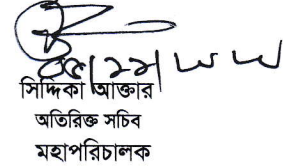 ০৫/১১/
সিদ্দিকা আক্তার
অতিরিক্ত সচিব
মহাপরিচালক